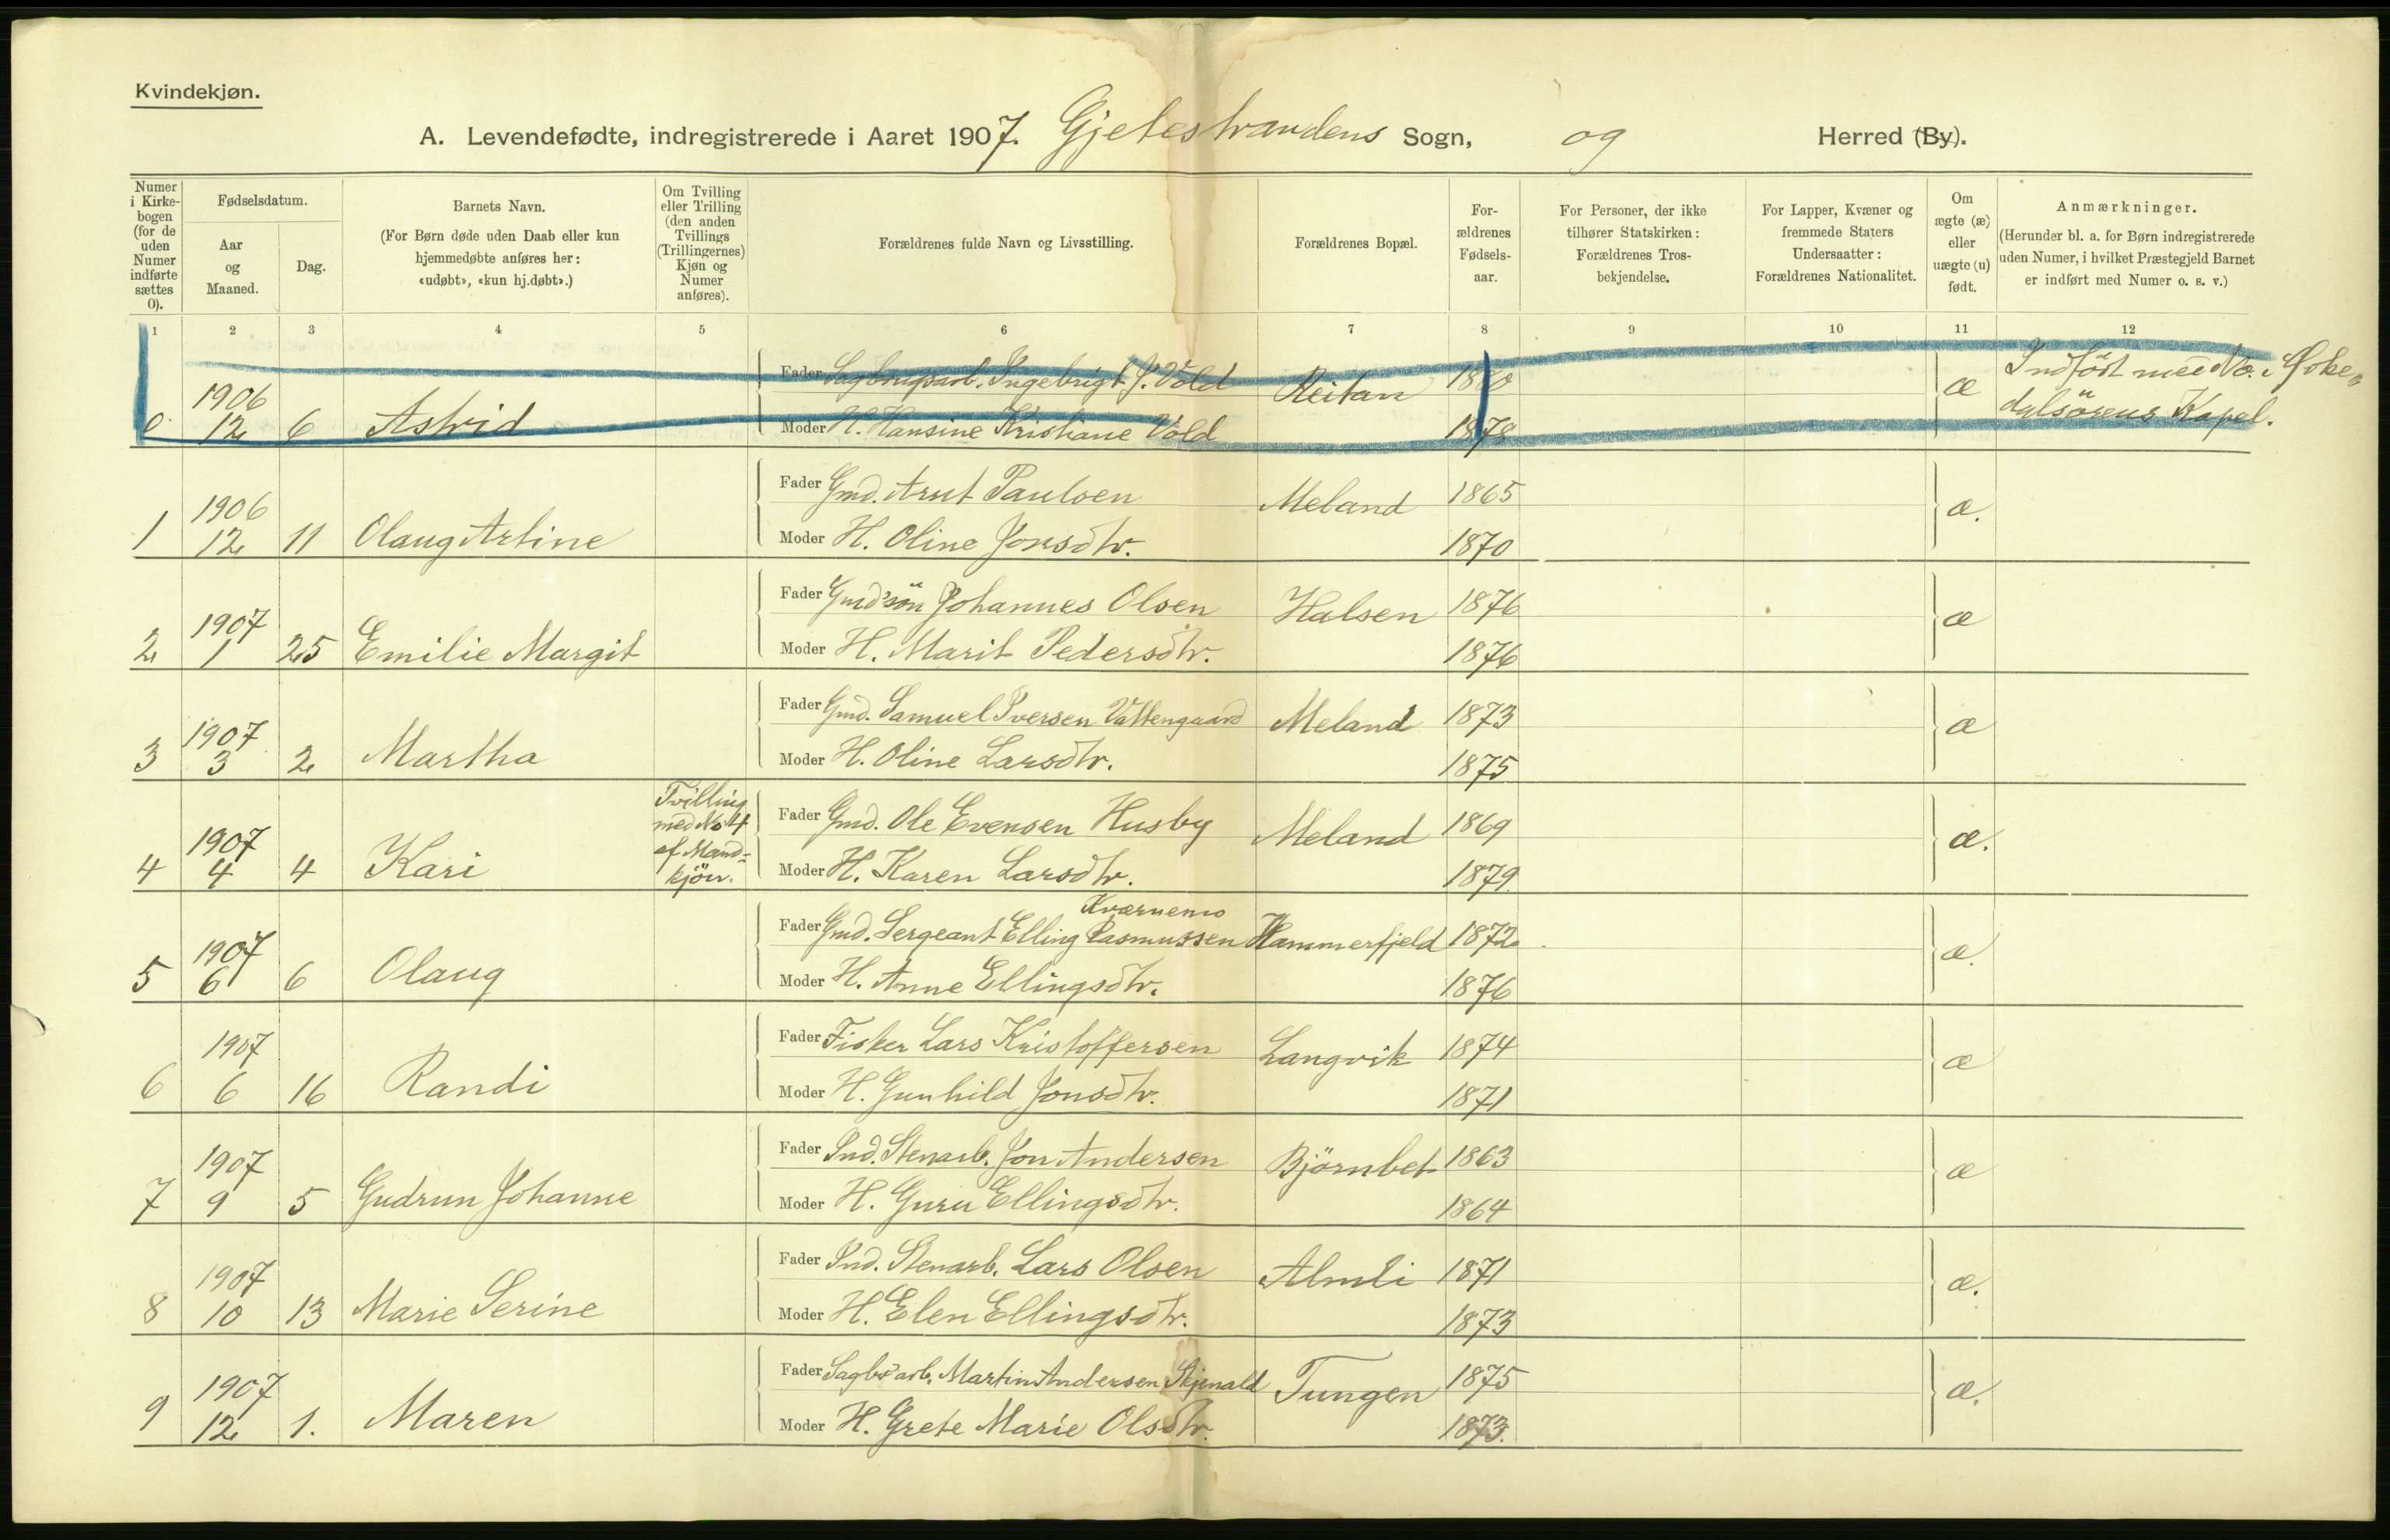 Kvindekjøn.
A. Levendefødte, indregistrerede i Aaret 1907. Gjelestrandens Sogn, og Herred (By).
Numer i Kirke-bogen (for de uden Numer indførte sættes 0).
Fødselsdatum.
Aar og Maaned.
Dag.
Barnets Navn.
(For Børn døde uden Daab eller kun hjemmedøbte anføres her: «udøbt», «kun hj.døbt».)
Om Tvilling eller Trilling (den anden Tvillings (Trillingernes) Kjøn og Numer anføres).
Forældrenes fulde Navn og Livsstilling.
Forældrenes Bopæl.
For-ældrenes Fødsels-aar.
For Personer, der ikke tilhører Statskirken: Forældrenes Tros-bekjendelse.
For Lapper, Kvæner og fremmede Staters Undersaatter: Forældrenes Nationalitet.
Om ægte (æ) eller uægte (u) født.
Anmærkninger.
(Herunder bl. a. for Børn indregistrerede uden Numer, i hvilket Præstegjeld Barnet er indført med Numer o. s. v.)
1 2 3 4 5 6 7 8 9 10 11 12
Fader Sagbrugsarb. Ingebrigt J. Vold Reitan æ Indført med No. i
0. 1906 12 6 Astrid Moder H. Hansine Kristiane Vold 1878 Kapel.
Fader Gmd. Arnt Paulsen Meland 1865 æ.
1 1906 12 11 Olaug Arline Moder H. Oline Jonsdtr. 1870
Fader Gmd's søn Johannes Olsen Halsen 1876 æ
2 1907 1 25 Emilie Margit Moder H. Marit Pedersdtr. 1876
Fader Gmd. Samuel Iversen Vattengaard Meland 1873 æ
3 1907 3 2 Martha Moder H. Oline Larsdtr. 1875
Tvilling med No 4 af Mand-kjøn.
Fader Gmd. Ole Evensen Husby Meland 1869 æ.
4 1907 4 4 Kari Moder H. Karen Larsdtr. 1879.
Kværnemo
Fader Gmd. Sergeant Elling Rasmussen Hammerfjeld 1872 æ.
5 1907 6 6 Olaug Moder H. Anne Ellingsdtr. 1876
Fader Fisker Lars Kristoffersen Langvik 1874 æ
6 1907 6 16 Randi Moder H. Gunhild Jonsdtr. 1871
Fader Ind. Stenarb. Jon Andersen Bjørnbet 1863 æ
7 1907 9 5 Gudrun Johanne Moder H. Guru Ellingsdtr. 1864
Fader Ind. Stenarb. Lars Olsen Almli 1871 æ.
8 1907 10 13 Marie Serine Moder H. Elen Ellingsdtr. 1873
Fader Sagbr'arb. Martin Andersen Skjenald Tungen 1875 æ.
9 1907 12 1. Maren Moder H. Grete Marie Olsdtr. 1873.